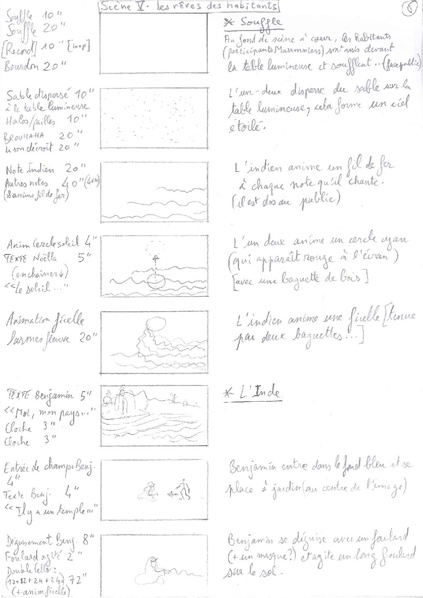 Scène V - Les rêves des habitants
6
Souffle 10"
Souffle 20"
[Record] 10" [loop]
Bourdon 20"
* Souffle
Au fond de scène à cour, les habitants
(participants Marommais) sont assis devant
la table lumineuse et soufflent...
Sable dispersé 10"
à la table lumineuse
Halos/pailles 10"
BROUHAHA 20"
20"
L'un-deux disperse du sable sur la
table lumineuse, cela forme un ciel
étoilé.
Note Indien 20"
Autres notes 40"
(Sanime fil de fer)
L'indien anime un fil de fer
à chaque note qu'il chante.
(il est dos au public)
Anim Cercle soleil 4"
TEXTE Noëlla 5"
(enchaîner)
<<Le soleil..."
L'un deux anime un cercle cyan
(qui apparaît rouge à l'écran)
[avec une baguette de bois]
Animation ficelle
larmes fleuve 20"
L'indien anime une ficelle [tenue
par deux baguettes...]
TEXTE Benjamin 5"
<<Moi, mon pays..."
Cloche 3"
Cloche 3"
* L'Inde
Entrée de champ Benj.
4"
Texte Benj. 4"
<<Il y a un temple"
Benjamin entre dans le fond bleu et se
place à jardin (au centre de l'image)
Déguisement Benj. 8"
Foulard agité 2"
Double
(12+12+24+24) 72"
(+ anim ficelle)
Benjamin se déguise avec un foulard
(+ un masque?) et agite un long foulard
sur le sol.